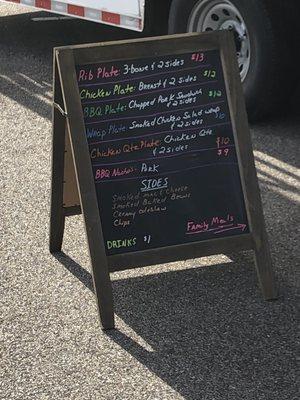 Rib Plate: 3-bone & 2 sides $13
Chicken Plate: Breast & 2 sides $12
BBQ Plate: Chopped Pork Sandwich $12
& 2 sides
Wrap Plate: Smoked Chicken Salad Wrap $10
& 2 sides
Chicken Qtr Plate: Chicken Qtr. $10
& 2 sides
BBQ Nachos: Pork $9
SIDES
Smoked mac & cheese
Smoked Baked Beans
Creamy coleslaw
Chips
Family Meals
DRINKS $1